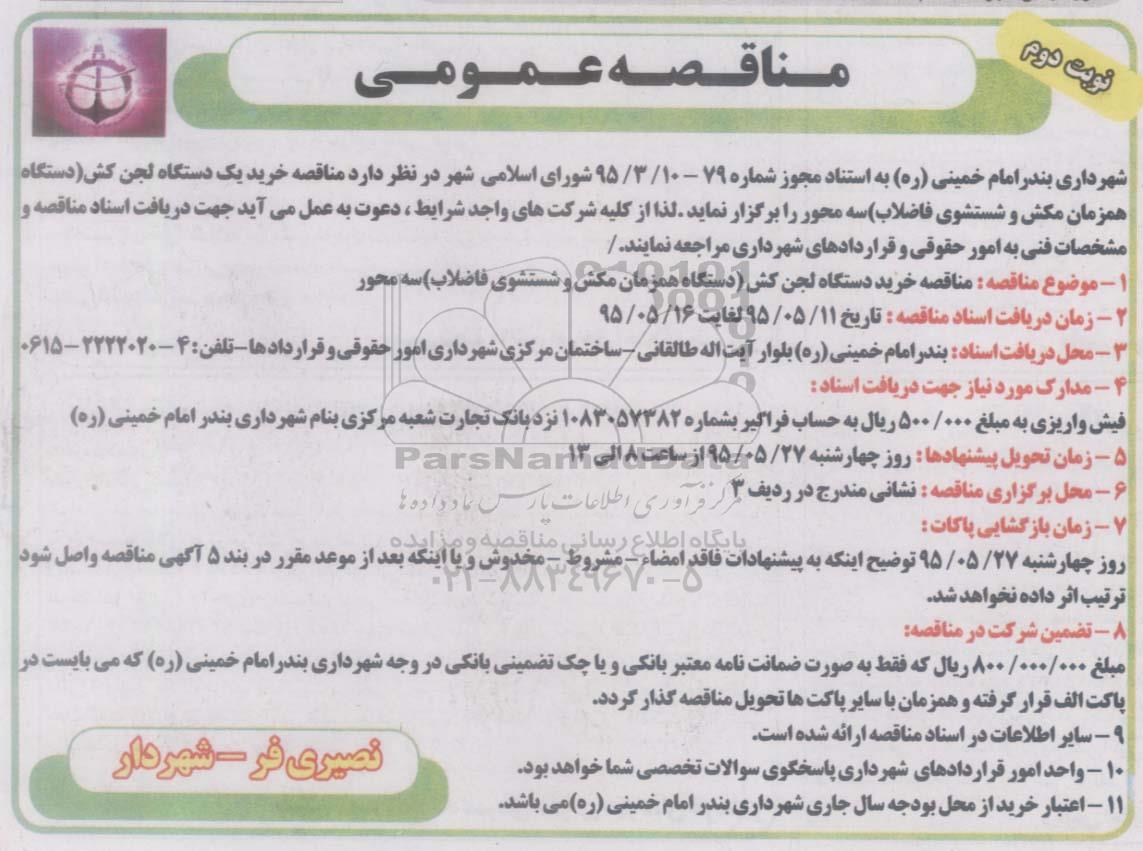 نوبت دوم
مناقصه عمومی
شهرداری بندر امام خمینی (ره) به استناد مجوز شماره ۷۹ – ۱۰/ ۳/ ۹۵ شورای اسلامی شهر در نظر دارد مناقصه خرید یک دستگاه لجن کش(دستگاه
همزمان مکش و شستشوی فاضلاب)سه محور را برگزار نماید .لذا از کلیه شرکت های واجد شرایط ، دعوت به عمل می آید جهت دریافت اسناد مناقصه و
مشخصات فنی به امور حقوقی و قراردادهای شهرداری مراجعه نمایند./
۱ – موضوع مناقصه : مناقصه خرید دستگاه لجن کش (دستگاه همزمان مکش و شستشوی فاضلاب)سه محور
۲ – زمان دریافت اسناد مناقصه : تاریخ ۱۱/ ۰۵/ ۹۵ لغایت ۱۶/ ۰۵/ ۹۵
۳ – محل دریافت اسناد: بندر امام خمینی (ره) بلوار آیت اله طالقانی – ساختمان مرکزی شهرداری امور حقوقی و قراردادها – تلفن: ۴ – ۲۲۲۲۰۲۰ – ۰۶۱۵
۴ – مدارک مورد نیاز جهت دریافت اسناد :
فیش واریزی به مبلغ ۵۰۰/۰۰۰ ریال به حساب فراگیر بشماره ۱۰۸۳۰۵۷۳۸۲ نزد بانک تجارت شعبه مرکزی بنام شهرداری بندر امام خمینی (ره)
۵ – زمان تحویل پیشنهادها : روز چهارشنبه ۲۷/ ۰۵/ ۹۵ از ساعت ۸ الی ۱۳
۶ – محل برگزاری مناقصه : نشانی مندرج در ردیف ۳
۷ – زمان بازگشایی پاکات :
روز چهارشنبه ۲۷/ ۰۵/ ۹۵ توضیح اینکه به پیشنهادات فاقد امضاء – مشروط – مخدوش و یا اینکه بعد از موعد مقرر در بند ۵ آگهی مناقصه واصل شود
ترتیب اثر داده نخواهد شد.
۸ – تضمین شرکت در مناقصه:
مبلغ ۸۰۰/۰۰۰/۰۰۰ ریال که فقط به صورت ضمانت نامه معتبر بانکی و یا چک تضمینی بانکی در وجه شهرداری بندر امام خمینی (ره) که می بایست در
پاکت الف قرار گرفته و همزمان با سایر پاکت ها تحویل مناقصه گذار گردد.
۹ – سایر اطلاعات در اسناد مناقصه ارائه شده است.
۱۰ – واحد امور قراردادهای شهرداری پاسخگوی سوالات تخصصی شما خواهد بود.
۱۱ – اعتبار خرید از محل بودجه سال جاری شهرداری بندر امام خمینی (ره)می باشد.
نصیری فر – شهردار
ParsNamadData
مرکز فرآوری اطلاعات پارس نماد داده ها
پایگاه اطلاع رسانی مناقصه و مزایده
۰۲۱–۸۸۳۴۹۶۷۰–۵